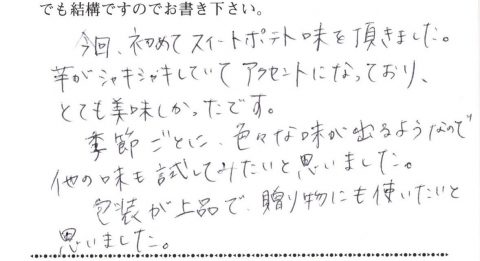 でも結構ですのでお書き下さい。
今回、初めてスイートポテト味を頂きました。
芋がシャキシャキしていてアクセントになっており、
とても美味しかったです。
季節ごとに、色々な味が出るようなので
他の味も試してみたいと思いました。
包装が上品で、贈り物にも使いたいと
思いました。